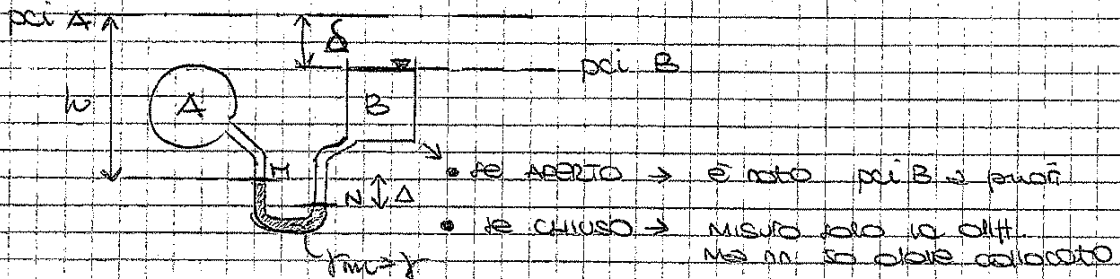 pci A
δ
pci B
h
A
B
M
• se APERTO → è noto pci B a priori
N Δ
• se CHIUSO → misuro solo la diff.
γm > γ
ma nn so dove collocarlo